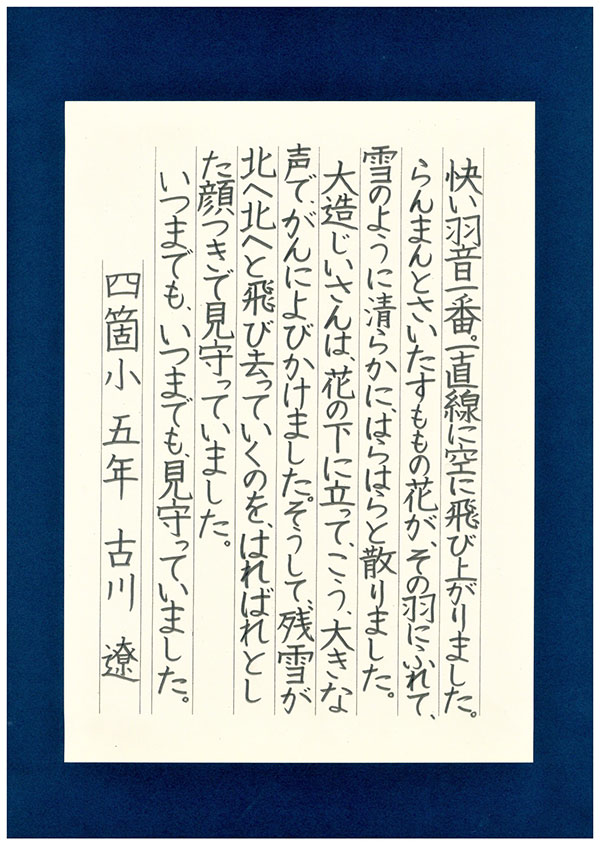 快い羽音一番。一直線に空に飛び上がりました。
らんまんとさいたすももの花が、その羽にふれて、
雪のように清らかに、はらはらと散りました。
大造じいさんは、花の下に立って、こう、大きな
声で、がんによびかけました。そうして、残雪が
北へ北へと飛び去っていくのを、はればれとし
た顔つきで見守っていました。
いつまでも、いつまでも、見守っていました。
四箇小 五年 古川 遼